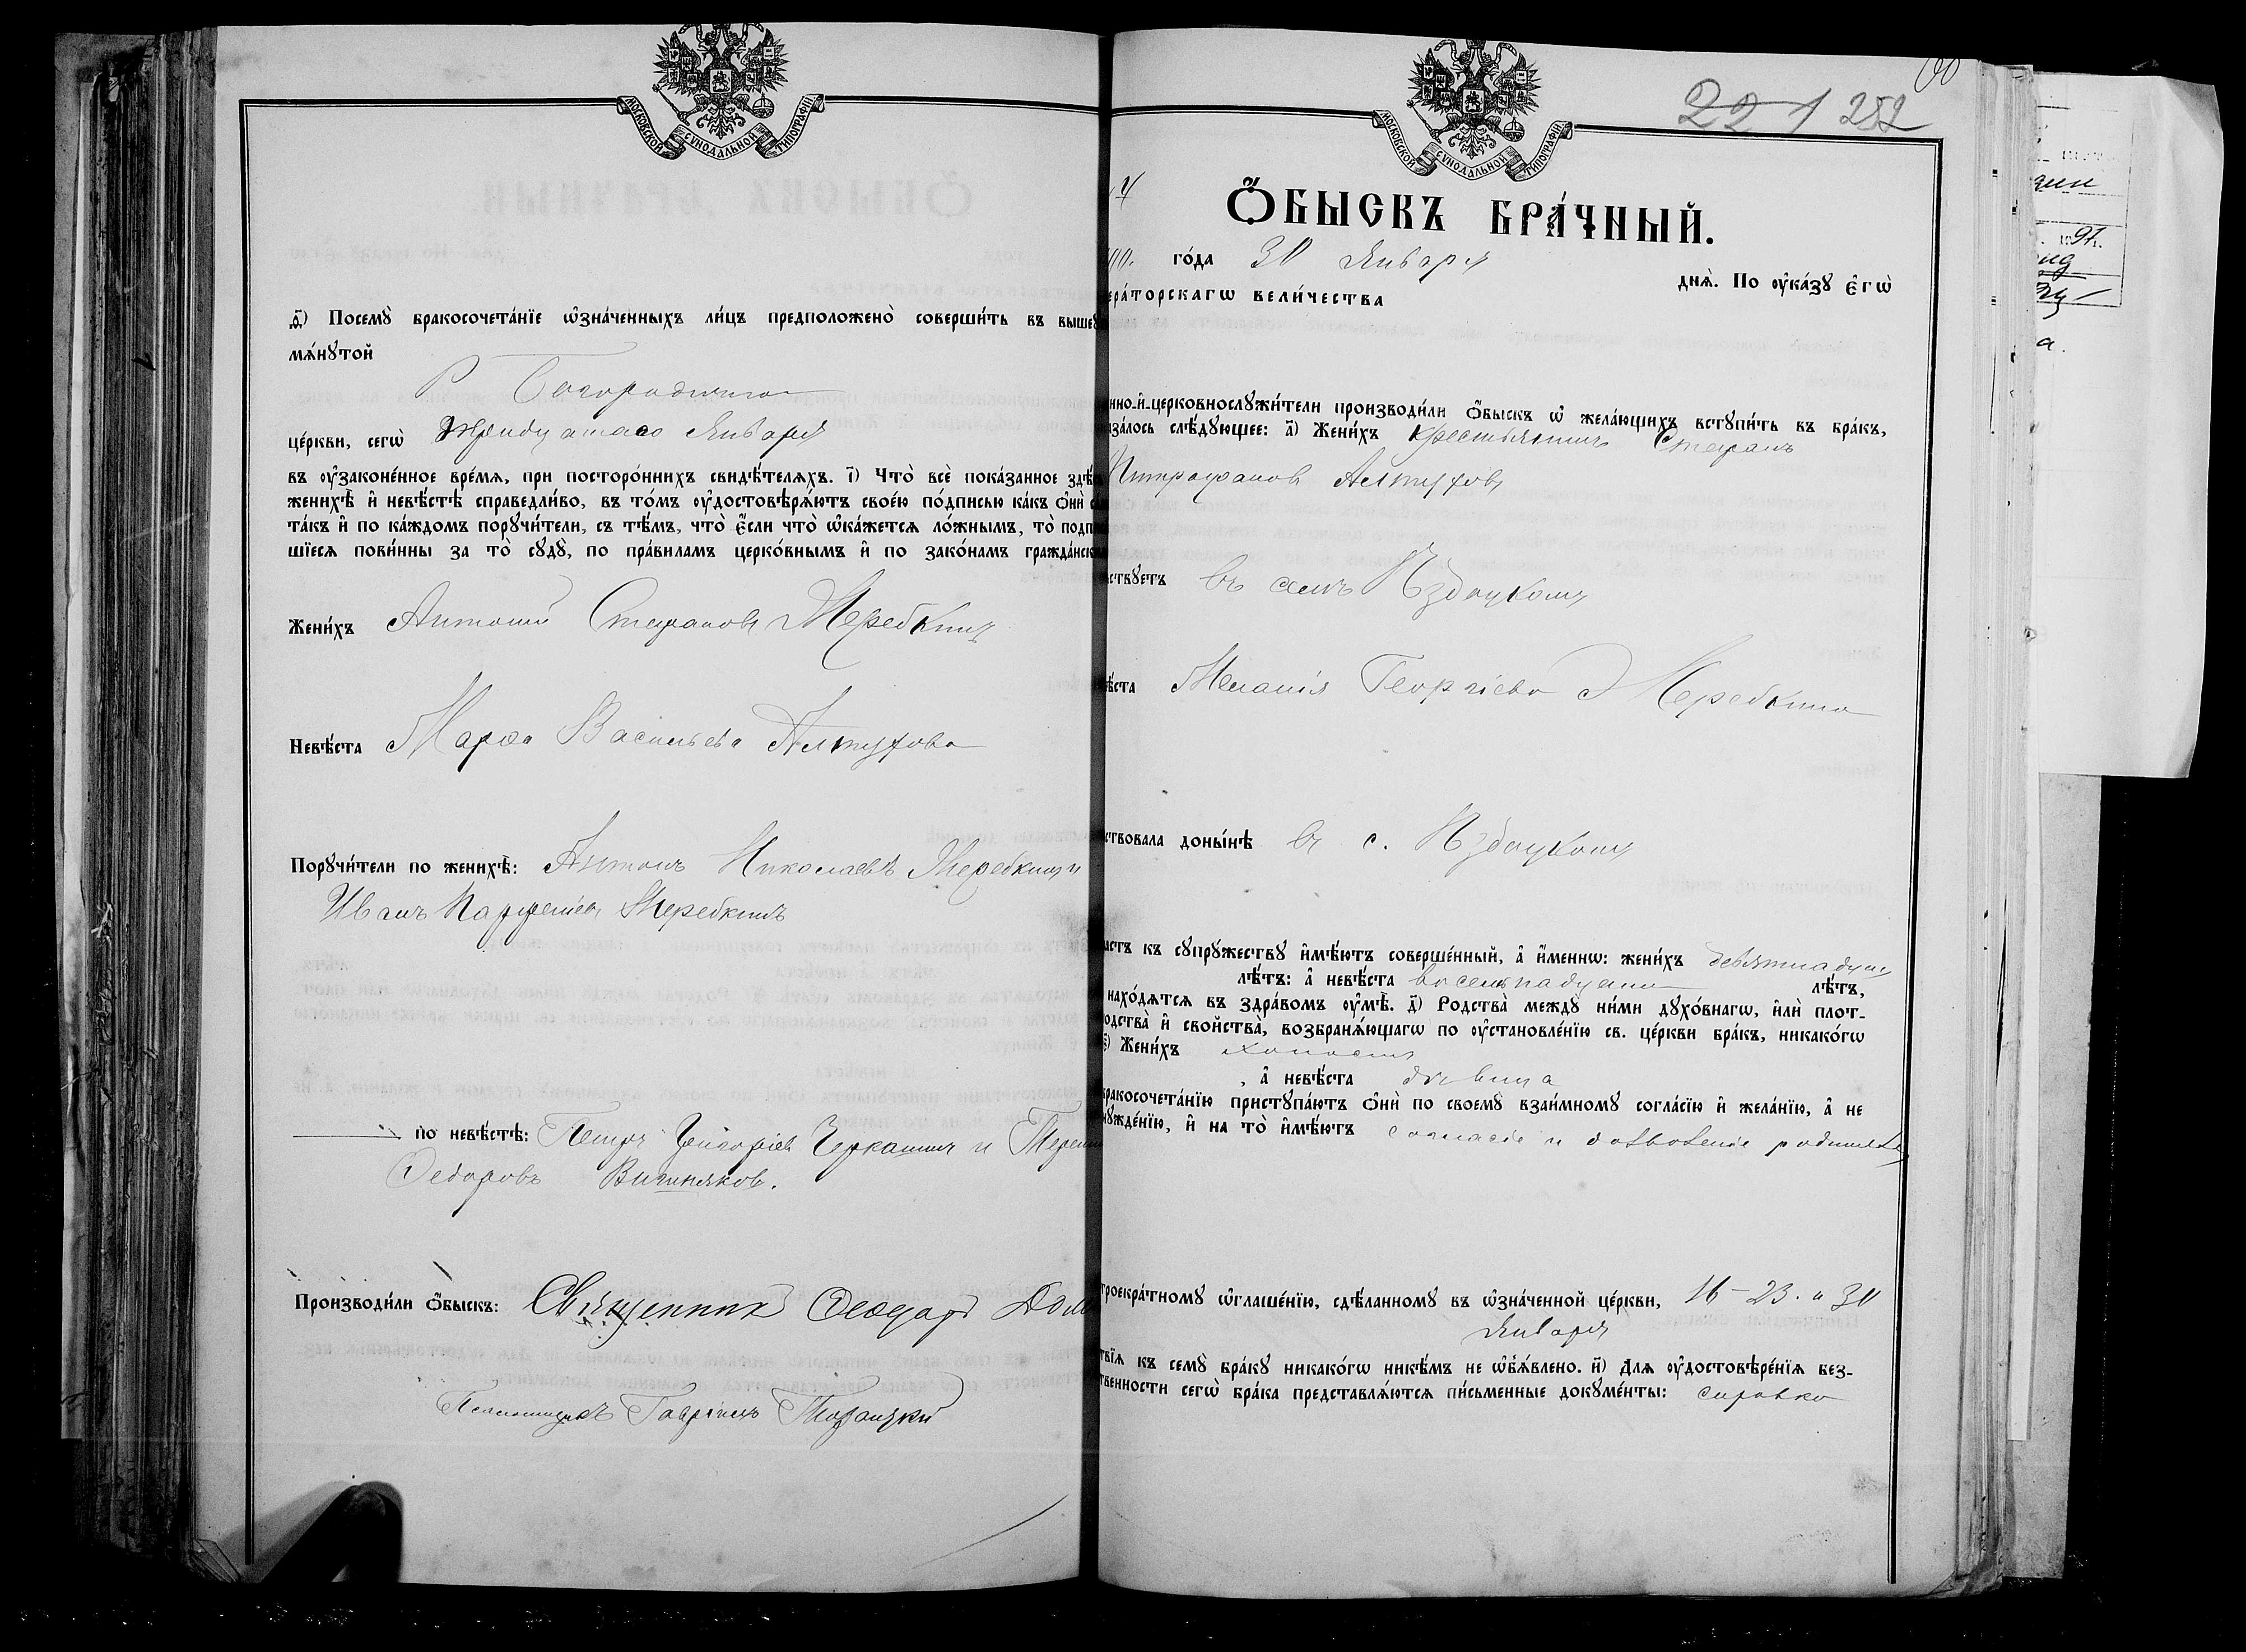 МОСКОВСКОЙ СУНОДАЛЬНОЙ ТИПОГРАФІИ.
д҃) Посемꙋ̀ бракосочета́нїе ѡ҆зна́ченныхъ ли́цъ предположено̀ соверши́ть въ вышеꙋ
мѧ́нꙋтой
Р Богородична
це́ркви, сегѡ̀ тридцатаго Января
въ ᲂу҆законе́нное вре́мѧ, при посторо́ннихъ свидѣ́телѧхъ. і҃) Что̀ всѐ пока́занное здѣ́
женихѣ̀ и҆ невѣ́стѣ справедли́во, въ то́мъ ᲂу҆достовѣрѧ́ютъ свое́ю по́дписью ка́къ ѻ҆нѝ са
та́къ и҆ по ка́ждомъ порꙋчи́тели, съ тѣ́мъ, что̀ є҆́сли что̀ ѡ҆ка́жетсѧ ло́жнымъ, то̀ подп
шїесѧ пови́нны за то̀ сꙋдꙋ̀, по пра́виламъ церко́внымъ и҆ по зако́намъ гражда́нск
Жени́хъ Антоній Стефановъ Жеребкинъ
Невѣ́ста Марѳа Васильева Алтухова
Порꙋчи́тели по женихѣ̀: Антонъ Николаевъ Жеребкинъ и
Иванъ Парфеніев Жеребкинъ
по невѣ́стѣ: Петръ Григоріев Черкашин и
Ѳедоровъ
Производи́ли ѻ҆́быскъ: Священникъ Ѳеодоръ
Псаломщикъ Гавріилъ
МОСКОВСКОЙ СУНОДАЛЬНОЙ ТИПОГРАФІИ.
221 252
4
Ѻ҆́БЫСКЪ БРА́ЧНЫЙ.
го́да 30 Января днѧ̀. По ᲂу҆ка́зꙋ є҆гѡ̀
ера́торскагѡ вели́чества
нно-и҆-церковнослꙋжи́тели производи́ли ѻ҆́быскъ ѡ҆ жела́ющихъ встꙋпи́ть въ бра́къ,
за́лось слѣ́дꙋющее: а҃) Жени́хъ крестьянинъ Стефанъ
Митрофанов Алтухов
ствꙋетъ въ селѣ Избоцкомъ
ѣ́ста Меланія Георгіева Жеребкина
ствовала доны́нѣ в с. Избоцкомъ
астъ къ сꙋпрꙋ́жествꙋ и҆мѣ́ютъ соверше́нный, а҆ и҆́меннѡ: жени́хъ девятнадцати
лѣ́тъ: а҆ невѣ́ста восемнадцати лѣ́тъ,
нахо́дѧтсѧ въ здра́вомъ ᲂу҆мѣ̀. д҃) Родства̀ междꙋ ни́ми дꙋхо́внагѡ, и҆лѝ плот-
одства̀ и҆ свойства̀, возбранѧ́ющагѡ по ᲂу҆становле́нїю св. це́ркви бра́къ, никако́гѡ
є҃) Жени́хъ холостъ
, а҆ невѣ́ста дѣвица
бракосочета́нїю пристꙋпа́ютъ ѻ҆нѝ по своемꙋ̀ взаи́мномꙋ согла́сїю и҆ жела́нїю, а҆ не
нꙋжде́нїю, и҆ на то̀ и҆мѣ́ютъ согласіе и дозволеніе родителей
троекра́тномꙋ ѡ҆глаше́нїю, сдѣ́ланномꙋ въ ѡ҆зна́ченной це́ркви, 16 – 23. и 30
Января
твїѧ къ семꙋ̀ бра́кꙋ никако́гѡ никѣ́мъ не ѡ҆б̾ѧ́влено. и҃) Длѧ ᲂу҆достовѣре́нїѧ без-
твенности сегѡ̀ бра́ка представлѧ́ютсѧ пи́сьменные докꙋме́нты: справка